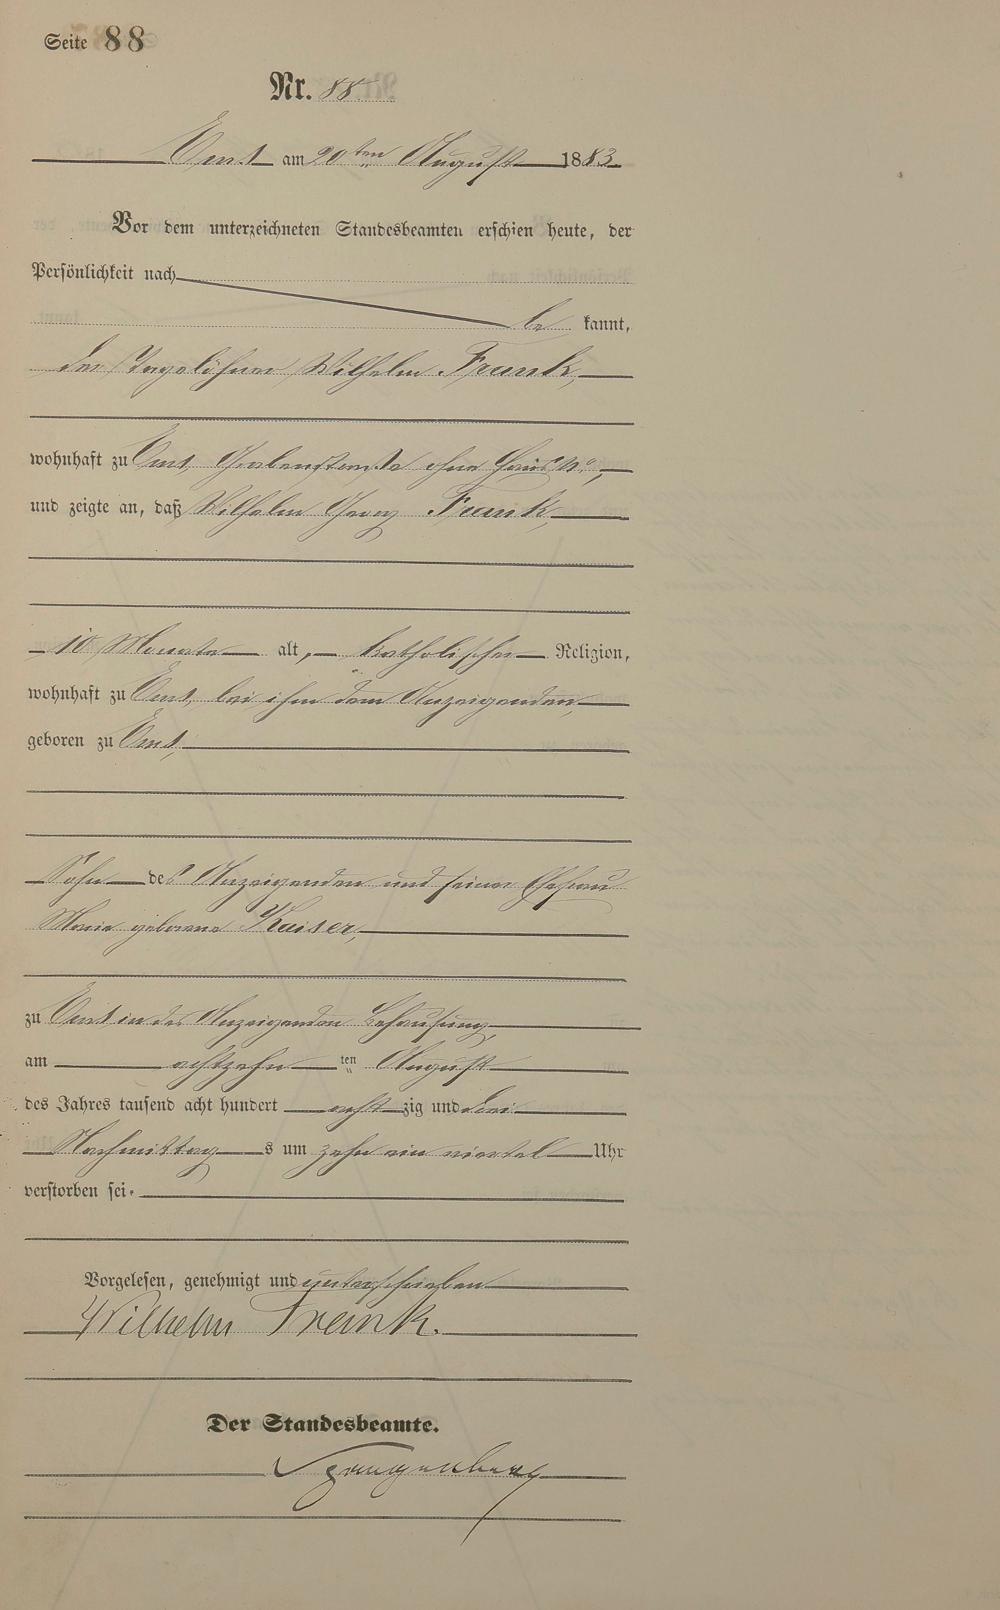 Seite 88
Nr. 88
Ems am 20ten August 1883.
Vor dem unterzeichneten Standesbeamten erschien heute, der
Persönlichkeit nach
be kannt,
der Tagelöhner Wilhelm Frank,
wohnhaft zu Ems, Grabenstraße ohne Haus No,
und zeigte an, daß Wilhelm Georg Frank,
10 Monate alt, katholischer Religion,
wohnhaft zu Ems, bei ihm dem Anzeigenden,
geboren zu Ems,
Sohn des Anzeigenden und seiner Ehefrau
Marie geborene Kaiser,
zu Ems in des Anzeigenden Behausung,
am achtzehn ten August
des Jahres tausend acht hundert acht zig und drei
Nachmittag s um zehn ein viertel Uhr
verstorben sei.
Vorgelesen, genehmigt und unterschrieben
Wilhelm Frank.
Der Standesbeamte.
Spangenberg